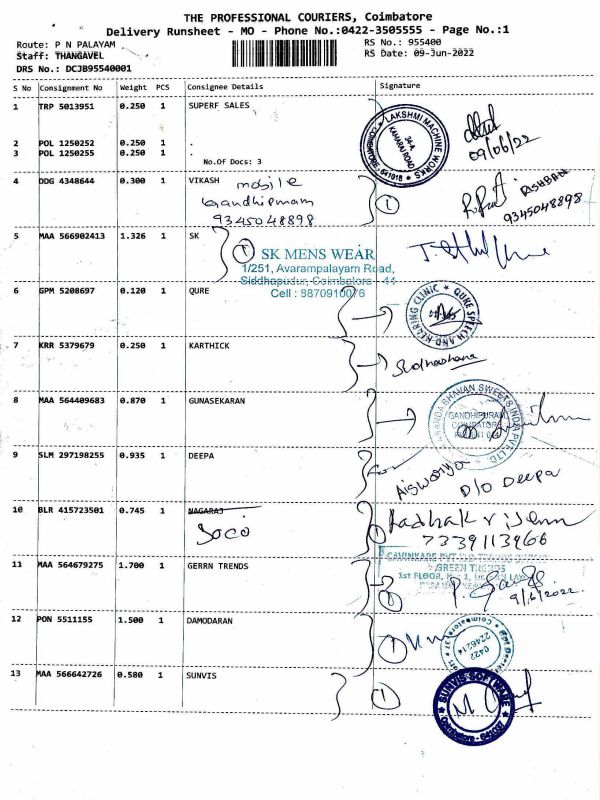 THE PROFESSIONAL COURIERS, Coimbatore
Delivery Runsheet - MO - Phone No.:0422-3505555 - Page No.:1
Route: P N PALAYAM RS No.: 955400
Staff: THANGAVEL RS Date: 09-Jun-2022
DRS No.: DCJB95540001
S No Consignment No. Weight PCS Consignee Details Signature
1 TRP 5013951 0.250 1 SUPERF SALES
LAKSHMI MACHINE WORKS
COIMBATORE - 641018
34-A
KAMARAJ ROAD
09/06/22
2 POL 1250252 0.250 1 .
3 POL 1250255 0.250 1 .
No.Of Docs: 3
4 DDG 4348644 0.300 1 VIKASH mobile
Gandhipuram
9345048898
1
RISHBAN
9345048898
5 MAA 566902413 1.326 1 SK
1
SK MENS WEAR
1/251, Avarampalayam Road,
Siddhapudur, Coimbatore - 44
Cell : 8870910076
6 GPM 5208697 0.120 1 QURE
QURE SPEECH AND HEARING CLINIC
7 KRR 5379679 0.250 1 KARTHICK
Sudharshana
8 MAA 564409683 0.870 1 GUNASEKARAN
BHAVAN SWEETS INDIA PVT LTD
GANDHIPURAM
COIMBATORE
9 SLM 297198255 0.935 1 DEEPA
Aiswariya
D/O Deepa
10 BLR 415723501 0.745 1 NAGARAJ
Soco
1
Radhakrishnan
7339113966
11 MAA 564679275 1.700 1 GERRN TRENDS
CAVINKARE PVT LTD
GREEN TRENDS
1st FLOOR,
9/6/2022
12 PON 5511155 1.500 1 DAMODARAN
1
0422
2246214
Coimbatore-37
13 MAA 566642726 0.580 1 SUNVIS
1
SUNVIS SOFTWARE
Coimbatore - 641037